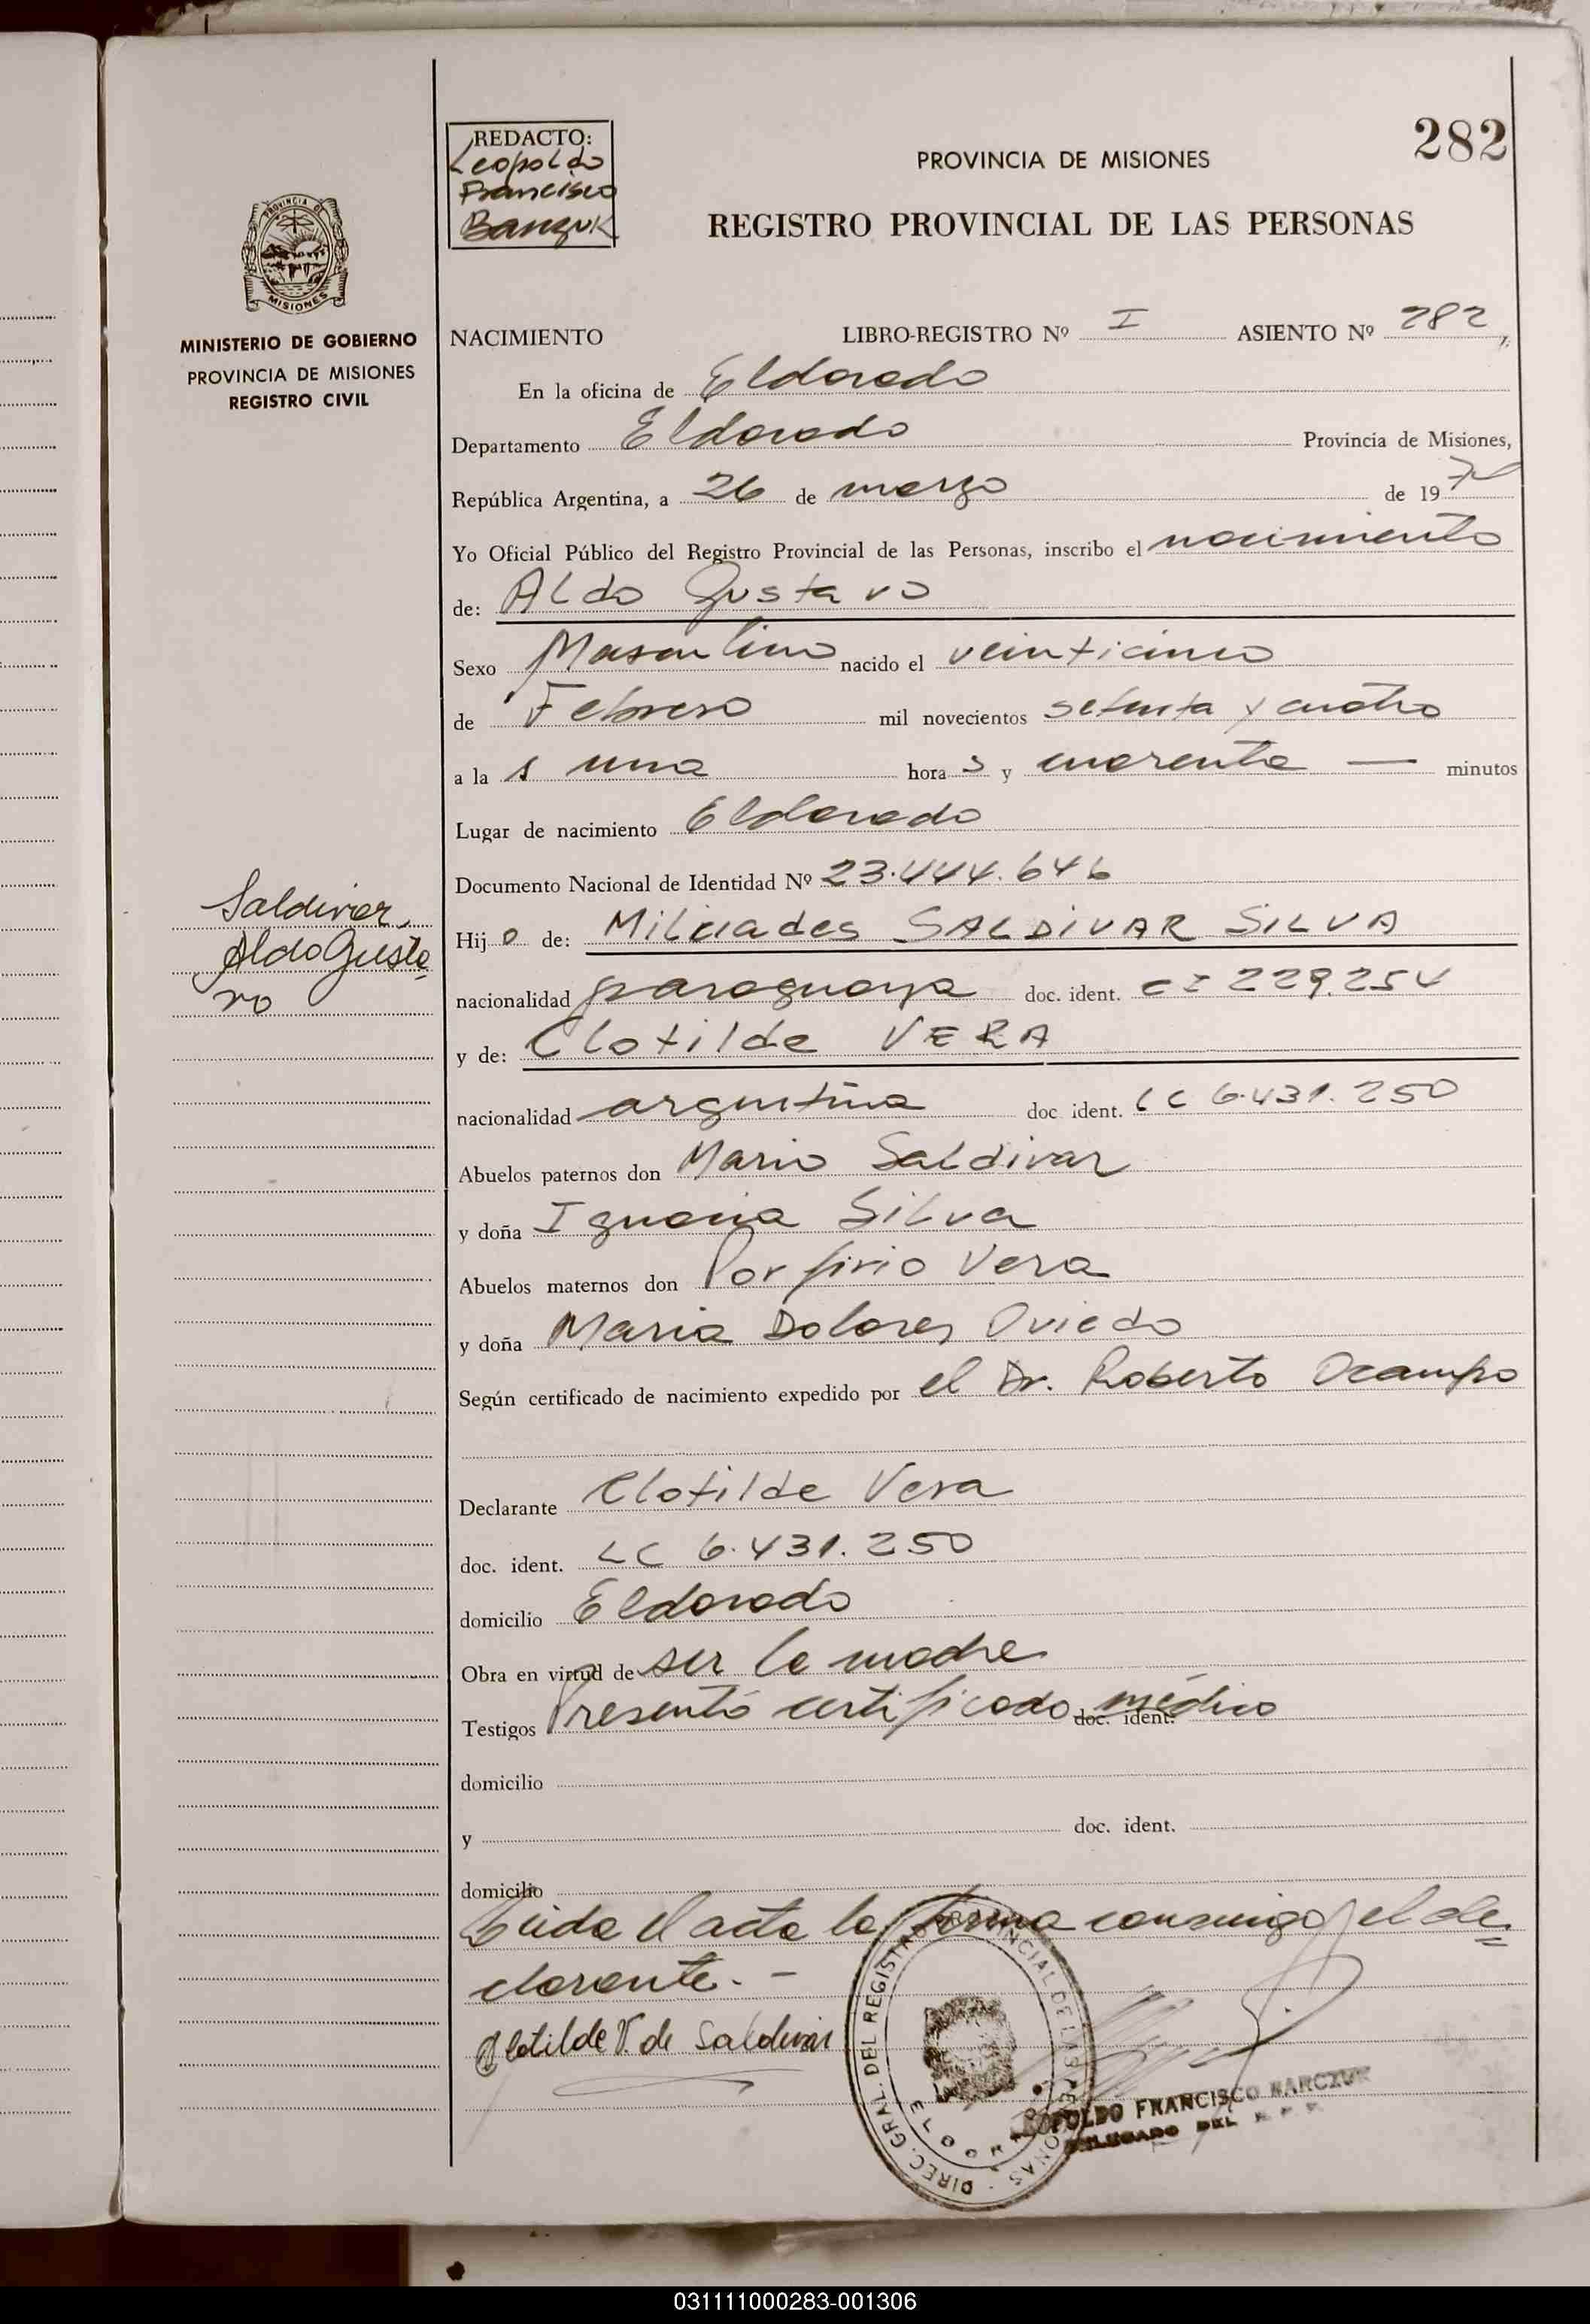 282
REDACTO:
Leopoldo
Francisco
PROVINCIA DE MISIONES
REGISTRO PROVINCIAL DE LAS PERSONAS
PROVINCIA DE
MISIONES
MINISTERIO DE GOBIERNO
PROVINCIA DE MISIONES
REGISTRO CIVIL
NACIMIENTO LIBRO-REGISTRO Nº I ASIENTO Nº 282
En la oficina de Eldorado
Departamento Eldorado Provincia de Misiones,
República Argentina, a 26 de marzo de 19 74
Yo Oficial Público del Registro Provincial de las Personas, inscribo el nacimiento
de: Aldo Gustavo
Sexo Masculino nacido el veinticinco
de Febrero mil novecientos setenta y cuatro
a la s una hora s y cuarenta — minutos
Lugar de nacimiento Eldorado
Documento Nacional de Identidad Nº 23.444.646
Saldivar,
Aldo Gusta
vo
Hij o de: Milciades SALDIVAR SILVA
nacionalidad paraguaya doc. ident. CI 229.254
y de: Clotilde VERA
nacionalidad argentina doc ident. LC 6.431.250
Abuelos paternos don Mario Saldivar
y doña Ignacia Silva
Abuelos maternos don Porfirio Vera
y doña Maria Dolores Oviedo
Según certificado de nacimiento expedido por el Dr. Roberto Ocampo
Declarante Clotilde Vera
doc. ident. LC 6.431.250
domicilio Eldorado
Obra en virtud de ser la madre
Testigos Presentó certificado médico doc. ident.
domicilio
y doc. ident.
domicilio
Leida el acta la firma conmigo el de
clarante. -
Clotilde V. de Saldivar
DIREC. GRAL. DEL REGISTRO PROVINCIAL DE LAS PERSONAS
LEOPOLDO FRANCISCO BARCZUK
DELEGADO DEL R. P. P.
031111000283-001306